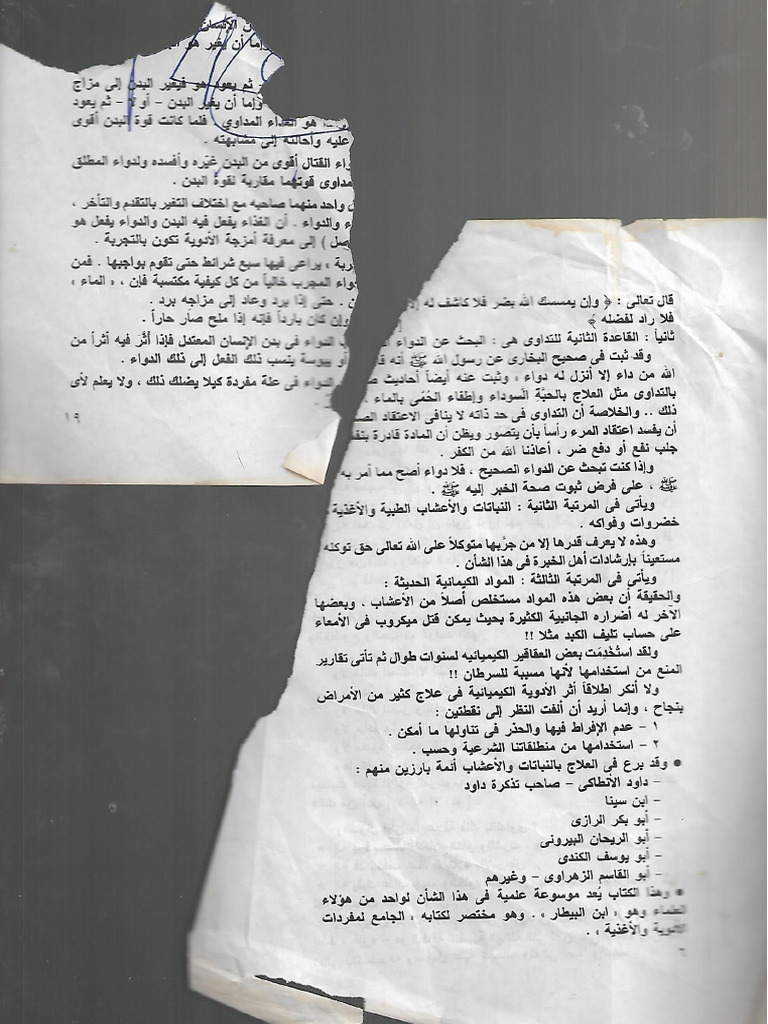 ن الإنسان
وإما أن يغير هو
ثم يعود هو فيغير البدن إلى مزاج
وإما أن يغير البدن - أولا - ثم يعود
هو الغذاء المداوي . فلما كانت قوة البدن أقوى
عليه وأحالته إلى مشابهته .
واء القتال أقوى من البدن غيّره وأفسده ولدواء المطلق
مداوى قوتهما مقاربة لقوة البدن .
ن واحد منهما صاحبه مع اختلاف التغير بالتقدم والتأخر ،
ء والدواء . أن الغذاء يفعل فيه البدن والدواء يفعل هو
صل ) إلى معرفة أمزجة الأدوية تكون بالتجربة .
ربة ، يراعى فيها سبع شرائط حتى تقوم بواجبها . فمن
واء المجرب خالياً من كل كيفية مكتسبة فإن ، « الماء »
ن . حتى إذا برد وعاد إلى مزاجه برد .
وإن كان بارداً فإنه إذا ملح صار حاراً .
الدواء فى بدن الإنسان المعتدل فإذا أثر فيه أثراً من
أو يبوسة ينسب ذلك الفعل إلى ذلك الدواء .
الدواء فى علة مفردة كيلا يضلك ذلك ، ولا يعلم لأى
١٩
قال تعالى : ﴿ وإن يمسسك الله بضر فلا كاشف له إلا
فلا راد لفضله ﴾
ثانياً : القاعدة الثانية للتداوى هى : البحث عن الدواء
وقد ثبت فى صحيح البخارى عن رسول الله ﷺ أنه قا
الله من داء إلا أنزل له دواء ، وثبت عنه أيضاً أحاديث ص
بالتداوى مثل العلاج بالحبّة السوداء وإطفاء الحُمّى بالماء .
ذلك .. والخلاصة أن التداوى فى حد ذاته لا ينافى الاعتقاد الص
أن يفسد اعتقاد المرء رأساً بأن يتصور ويظن أن المادة قادرة بنف
جلب نفع أو دفع ضر ، أعاذنا الله من الكفر .
وإذا كنت تبحث عن الدواء الصحيح ، فلا دواء أصح مما أمر به
ﷺ ، على فرض ثبوت صحة الخبر إليه ﷺ .
ويأتى فى المرتبة الثانية : النباتات والأعشاب الطبية والأغذية
خضروات وفواكه .
وهذه لا يعرف قدرها إلا من جرّبها متوكلاً على الله تعالى حق توكله
مستعيناً بإرشادات أهل الخبرة فى هذا الشأن .
ويأتى فى المرتبة الثالثة : المواد الكيمائية الحديثة :
والحقيقة أن بعض هذه المواد مستخلص أصلاً من الأعشاب ، وبعضها
الآخر له أضراره الجانبية الكثيرة بحيث يمكن قتل ميكروب فى الأمعاء
على حساب تليف الكبد مثلا !!
ولقد استُخدِمَت بعض العقاقير الكيميائيه لسنوات طوال ثم تأتى تقارير
المنع من استخدامها لأنها مسببة للسرطان !!
ولا أنكر اطلاقاً أثر الأدوية الكيميائية فى علاج كثير من الأمراض
بنجاح ، وإنما أريد أن ألفت النظر إلى نقطتين :
١ - عدم الإفراط فيها والحذر فى تناولها ما أمكن .
٢ - استخدامها من منطلقاتنا الشرعية وحسب .
● وقد برع فى العلاج بالنباتات والأعشاب أئمة بارزين منهم :
- داود الأنطاكى - صاحب تذكرة داود
- ابن سينا
- أبو بكر الرازى
- أبو الريحان البيرونى
- أبو يوسف الكندى
- أبو القاسم الزهراوى - وغيرهم
● وهذا الكتاب يُعد موسوعة علمية فى هذا الشأن لواحد من هؤلاء
العلماء وهو « ابن البيطار » . وهو مختصر لكتابه « الجامع لمفردات
الأدوية والأغذية » .
٦